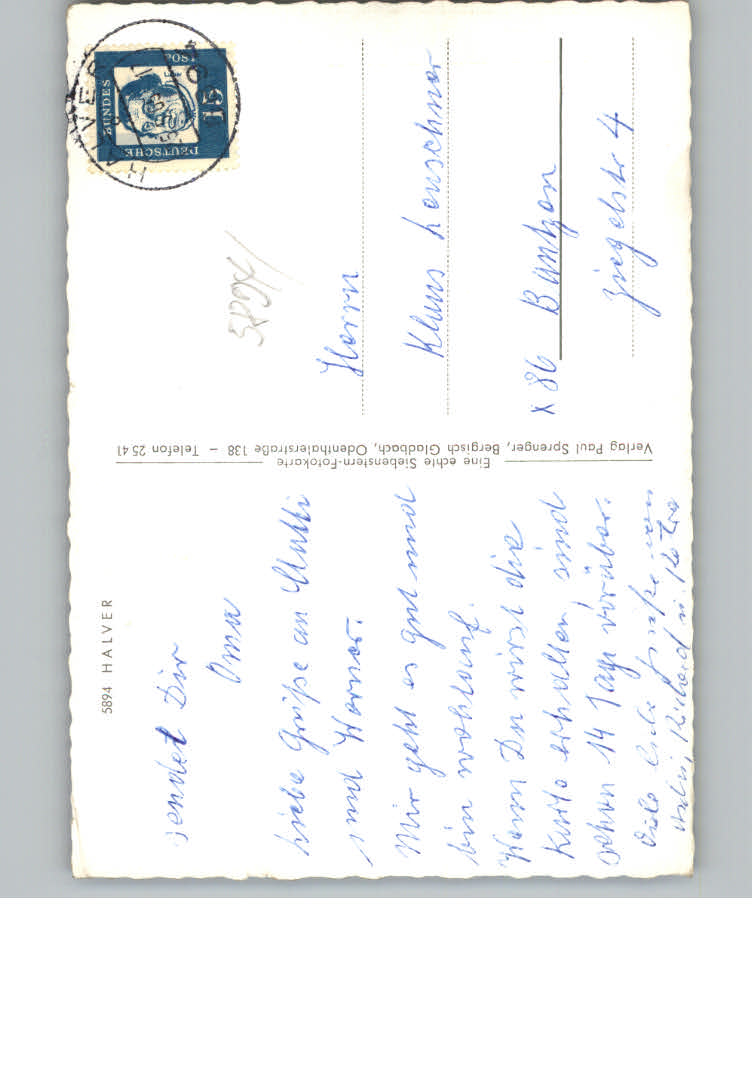 5894 HALVER
sendet Dir
Oma
Liebe Grüße an Mutti
und Werner.
Mir geht es gut und
bin wohlauf.
Wenn Du wirst die
Karte erhalten, sind
schon 14 Tage vorüber.
Viele liebe Grüße von
Richard u.
Eine echte Siebenstern-Fotokarte
Verlag Paul Sprenger, Bergisch Gladbach, Odenthalerstraße 138 – Telefon 25 41
DEUTSCHE
BUNDES
POST
15
HALVER
5894
Herrn
Klaus Leuschner
X 86 Bautzen
Ziegelstr 4